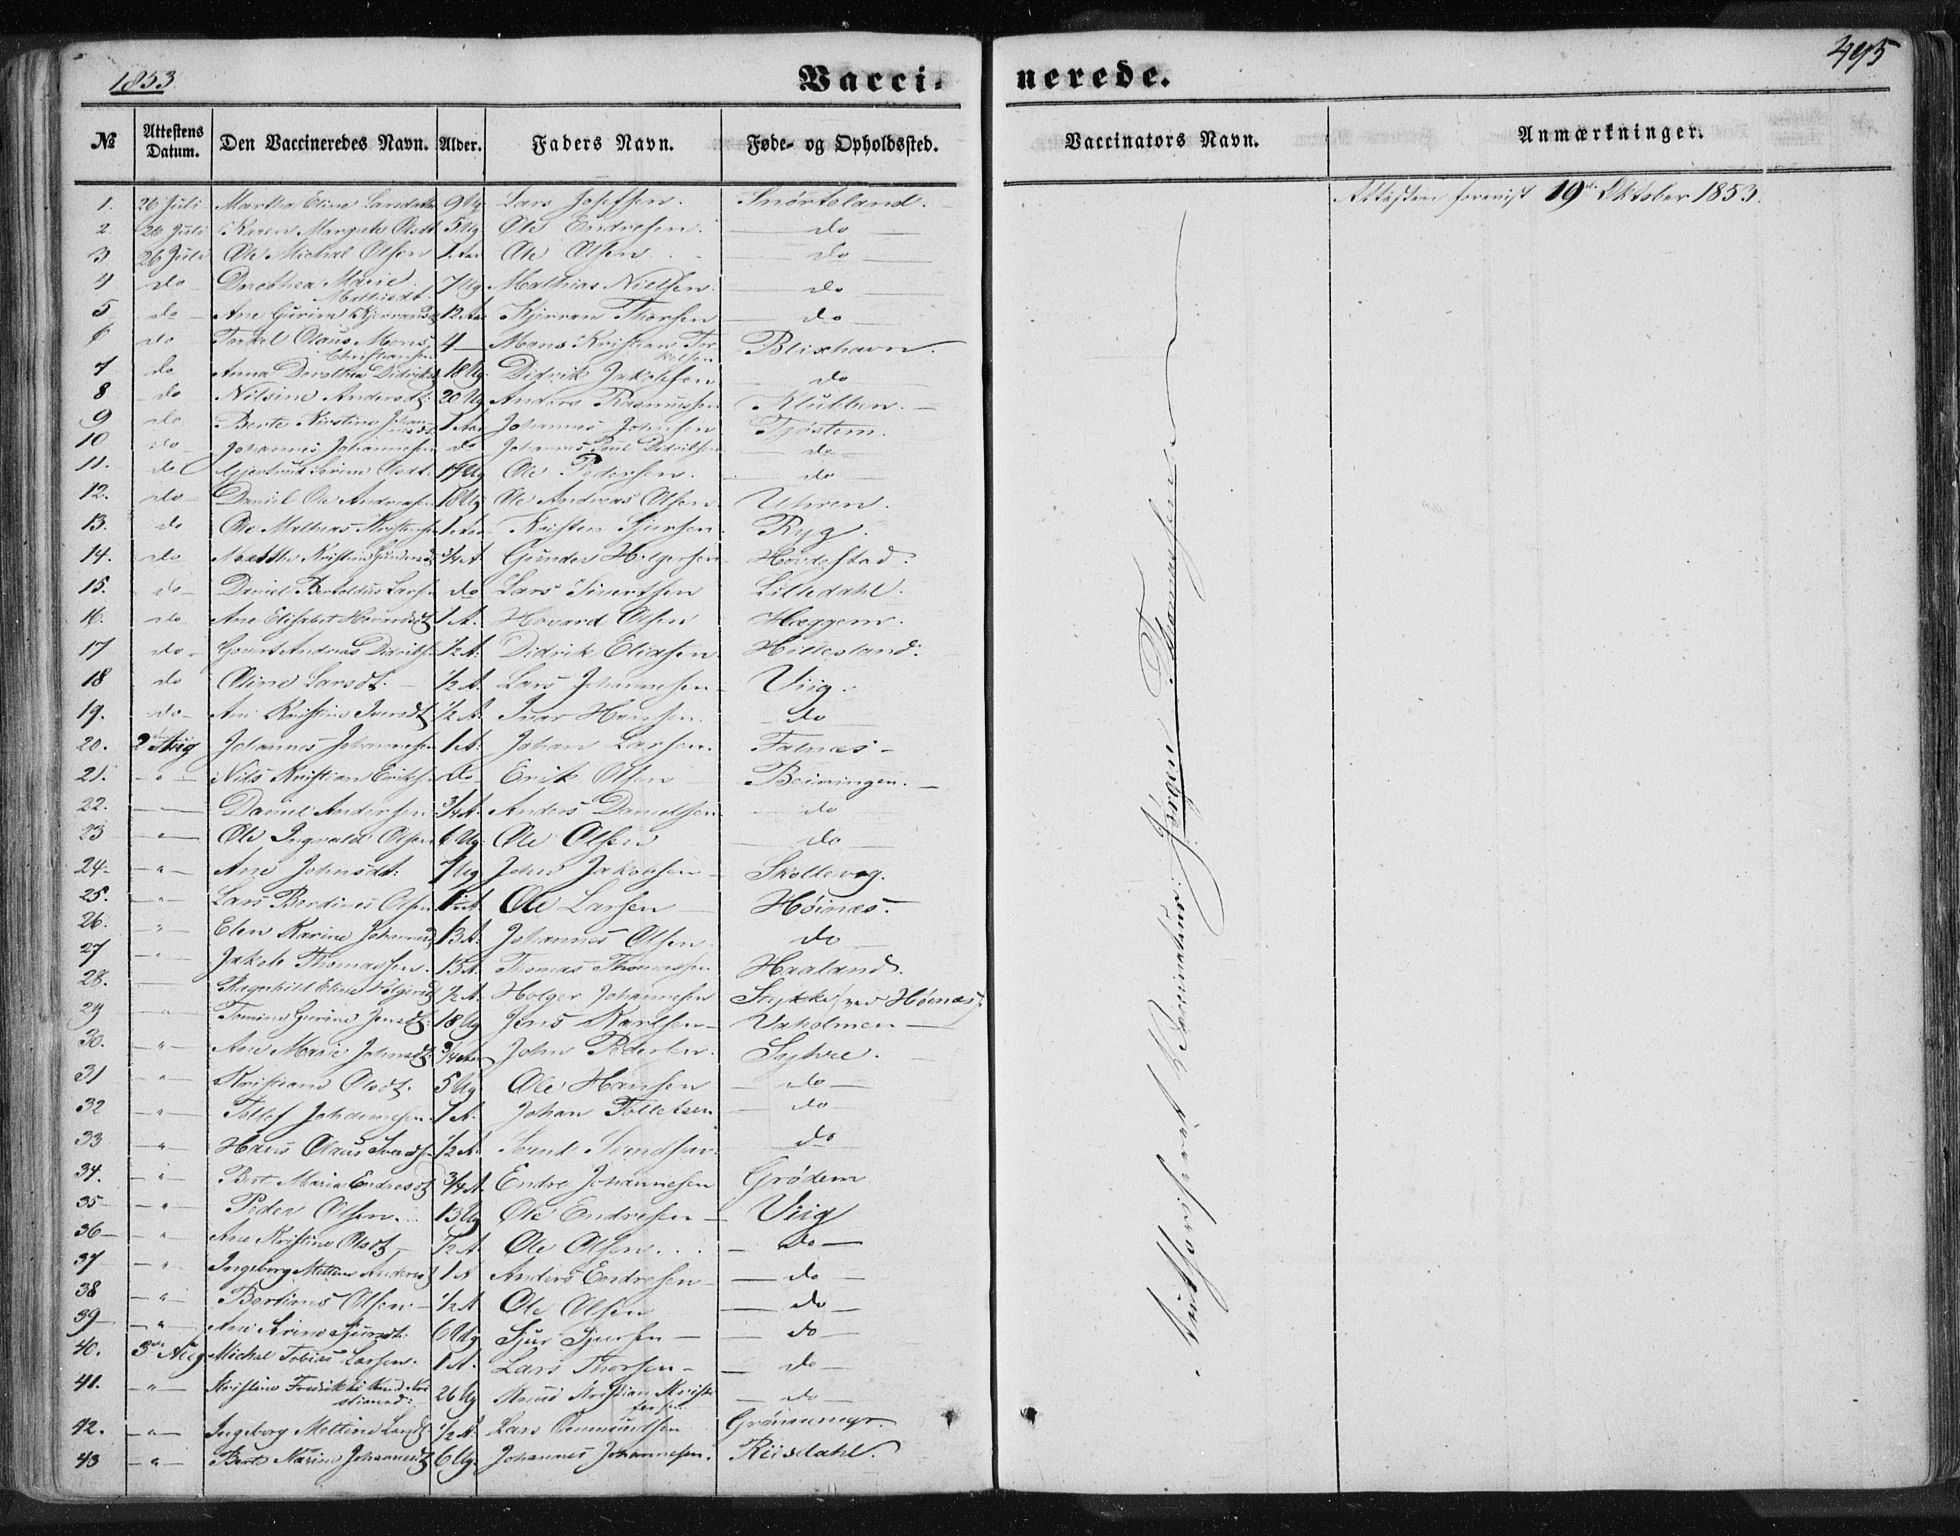 1853
Vacci-nerede.
495
№ Attestens Datum. Den Vaccineredes Navn. Alder. Faders Navn. Føde- og Opholdssted. Vaccinators Navn. Anmærkninger.
1. 26 Juli Martha Eline Larsdatter 9 Ug Lars Josefsen. Snørteland. Attesten forevist 19de Oktober 1853.
2. 26 Juli Karen Margrete Olsdt 5 Ug Ole Endresen. do
3 26 Juli Ole Michal Olsen 1 Aar Ole Olsen do
4 do Dorothea Marie Mathisdt. 7 Ug Mathias Nielsen. do
5 do Ane Gurine Kjerransdt 12 Aar Kjerran Thorsen do
6 do Torkel Olaus Mons Christiansen 4 Mons Kristian Torkelsen Blixhavn.
7 do Anna Dorothea Didriksd 18 Ug Didrik Jakobsen do
8 do Nilsine Andersdt. 20 Ug Anders Rasmussen
9 do Berte Kirstine Johannesdt 1 Aar Johannes Johnsen Tjøstem.
10 do Johannes Johannesen do Johannes Poul Didriksen do
11. do Gjertrud Serine Olsdt. 14 Ug Ole Pedersen. do
12. do Daniel Ole Andreasen 18 Ug Ole Andreas Olsen Uhren.
13. do Ole Mathias Kristensen 1 Aar Kristen Sjursen. Ryg.
14. do Marthe Kristine Gundersdt 3/4 A Gunder Holgersen Høidestad.
15. do Daniel Bertoldus Larsen do Lars Sivertsen Lilledahl.
16. do Ane Elisabet Havardsdt 1 A. Havard Olsen Hæggem.
17 do Govert Andreas Didriks. 1/2 A. Didrik Eliasen Hillesland.
18 do Oline Larsdt. 1/2 A. Lars Johannesen Viig.
19. do Ane Kristine Iversdt 1/2 A. Ivar Hansen. do
20. 2 Aug Johannes Johannesen 1 A. Johan Larsen. Falnæs
21. " Nils Kristian Eriksen do Erik Olsen Beiningen.
22. Daniel Andersen 3/4 A. Anders Danielsen do
23 " Ole Ingvald Olsen 6 Ug Ole Olsen do
24 " Ane Johnsdt. 7 Ug John Jakobsen Skollevog.
25. " Lars Berdines Olsen 1 1/2 A Ole Larsen Høinæs.
26. " Elen Karine Johannesd 13 A. Johannes Olsen do
27 " Jakob Thomassen. 13 A. Tomas Thomassen Haaland.
28. Ragnhild Eline Holgersd 1/2 A. Holger Johannesen Stykke (ved Høinæs)
29 " Tomine Gurine Jensdt. 18 Ug Jens Karlsen Vakolmen
30. " Ane Marie Johnsdt 3/4 Aar John Pedersen. Syhre.
31 " Kristiane Olsdt. 5 Ug Ole Hansen do
32 " Tollef Johannesen. 1 A. Johan Tollefsen do
33 " Hans Olaus Svends. 1/2 A. Svend Svendsen. do
34. " Bert Maria Endresdt 3/4 A. Endre Johannesen Grødem
35 " Peder Olsen. 13 Ug Ole Endresen Viig
36 " Ane Kristine Olsdt 1/2 A. Ole Olsen. do
37 " Ingeborg Mettine Andersd 1 A Anders Endresen do
38 " Berdines Olsen 1/2 A Ole Olsen do
39 " Ane Serine Sjursdt. 6 Ug Sjur Sjursen do
40. 3 Aug Michal Tobias Larsen. 1 A. Lars Thorsen do
41. " Kristine Fredrikke Knud Kristiansd: 26 Ug Knud Kristian Kristofersen do
42. " Ingeborg Mettine Larsdt. 1/2 A. Lars Omundsen Grønnmyr.
43 " Berte Karine Johannesdt 6 Ug. Johannes Johannesen. Riisdahl.
Authoriseret Vaccinatør: Jørgen Thomassen